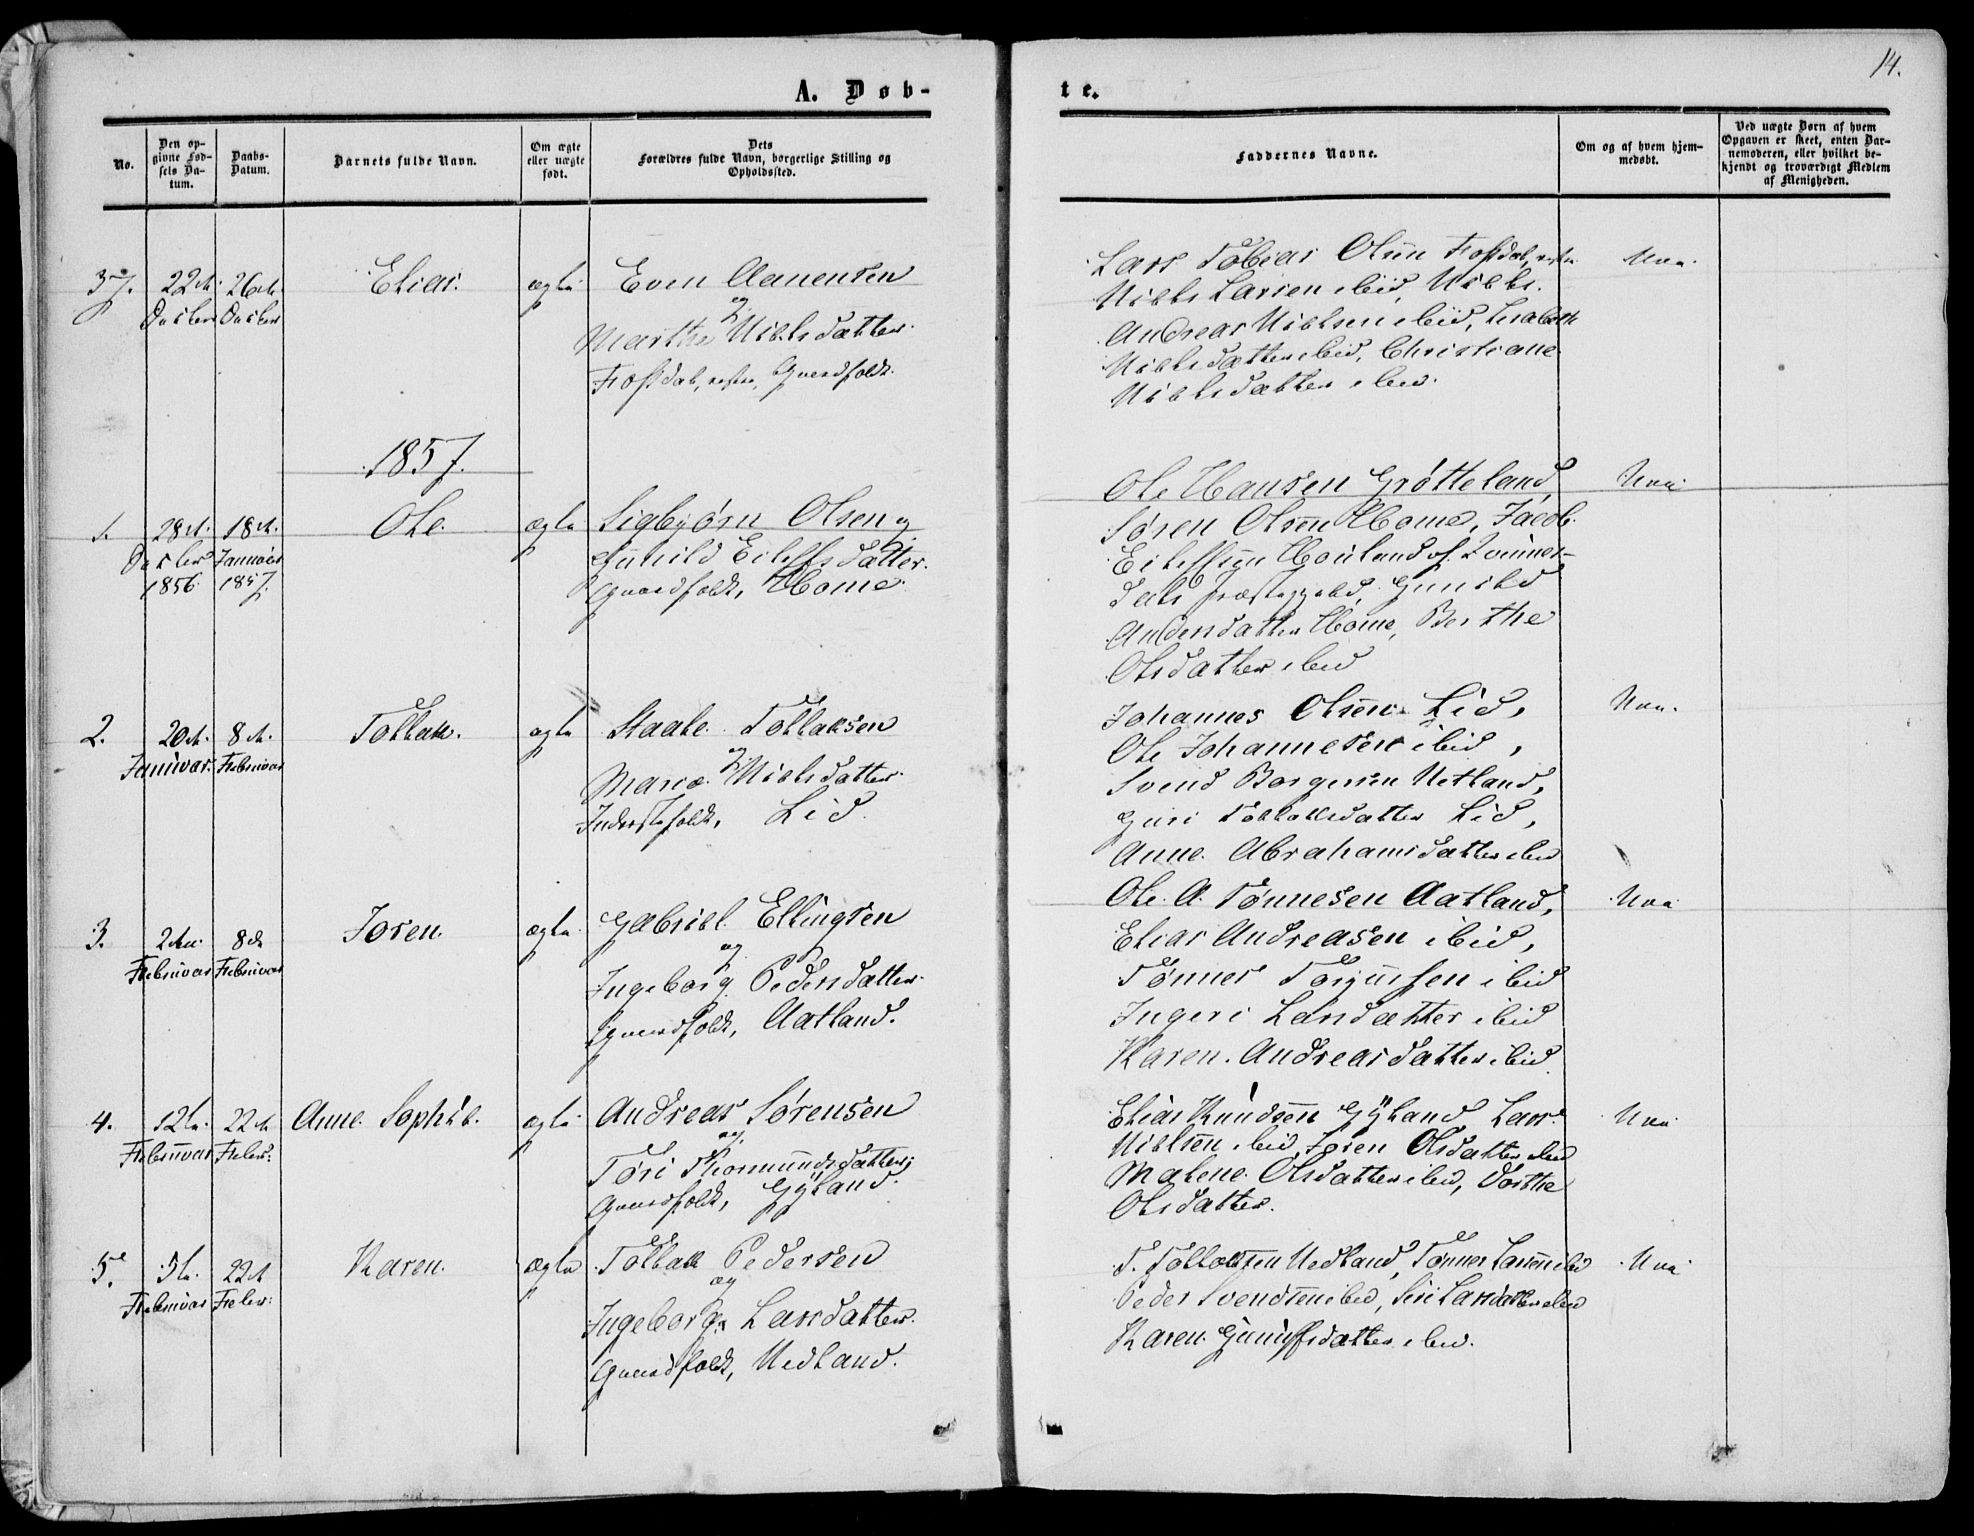 14.
A. Døb-
te.
No.
Den op-
givne Fød-
sels Da-
tum.
Daabs-
Datum.
Barnets fulde Navn.
Om ægte
eller uægte
født.
Dets
Forældres fulde Navn, borgerlige Stilling og
Opholdssted.
Faddernes Navne.
Om og af hvem hjem-
medøbt.
Ved uægte Børn af hvem
Opgaven er skeet, enten Bar-
nemoderen, eller hvilket be-
kjendt og troværdigt Medlem
af Menigheden.
37.
22de
26de
Elias.
ægte
Even Aanensen
og
Marthe Nielsdatter.
Fossdal, vestre, Gaardfolk.
Lars Tobias Olsen Fossdal, vestre
Niels Larsen ibid, Niels
Andreas Nielsen ibid, Lisabeth
Nielsdatter ibid, Christiane
Nielsdatter ibid.
1857.
1.
28de
1856.
18de
Januar
1857.
Ole.
ægte
Sigbjørn Olsen og
Gunild Eilefsdatter.
Gaardfolk, Home.
Ole Hansen Grøtteland
Søren Olsen Home, Jacob
Eilefsen Houland af
Præstegjeld, Gunild
Home, Berthe
Olsdatter ibid
2.
20de
Januar.
8de
Februar
Tollak.
ægte
Staale Tollaksen
og
Marie Nielsdatter.
Inderstfolk, Lid.
Johannes Olsen Lid,
Ole Johannesen ibid,
Svend Borgersen Netland,
Guri Tollaksdatter Lid,
Anne Abrahamsdatter ibid
3.
2den
Februar
8de
Februar
Joren.
ægte
Gabriel Ellingsen
og
Ingeborg Pedersdatter.
Gaardfolk, Aatland.
Ole A. Tønnesen Aatland,
Elias Andreasen ibid,
Tønnes Torjussen ibid
Ingeri Larsdatter ibid
Karen Andreasdatter ibid.
4.
12te
Februar
22de
Febr:
Anne Sophie.
ægte
Andreas Sørensen
og
Tøri Thormundsdatter;
Gaardfolk, Gyland.
Elias Knudsen Gyland Lars
Nielsen ibid, Joren Olsdatter ibid
Malene Olsdatter ibid, Dorthe
Olsdatter.
5.
5te
Februar
22de
Febr:
Karen.
ægte
Tollak Pedersen
og
Ingeborg Larsdatter.
Gaardfolk, Nedland.
T. Tollaksen Nedland, Tønnes Larsen ibid
Peder Svendsen ibid, Siri Larsdatter ibid
Karen Gunulfsdatter ibid.